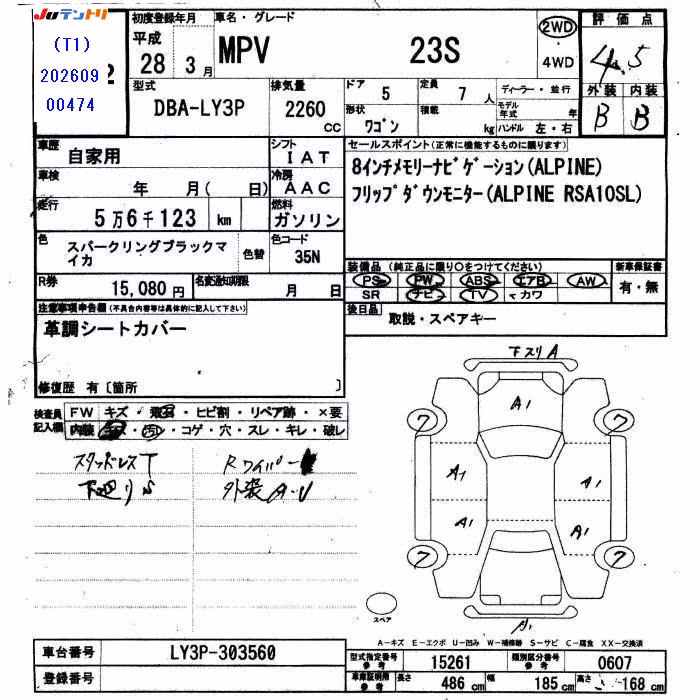 Juテントリ
(T1)
202609
00474
初度登録年月
平成
28 3月
車名・グレード
MPV 23S
2WD
4WD
評価点
4.5
外装 内装
B B
型式
DBA-LY3P
排気量
2260
CC
ドア 5
定員 7 人
形状 ワゴン
積載 kg
ディーラー・並行
モデル年式 年
ハンドル 左・右
車歴
自家用
シフト
IAT
車検
年 月( 日)
冷房
AAC
走行
5万6千123 km
燃料
ガソリン
色
スパークリングブラックマイカ
色替
色コード
35N
R券
15,080円
名変通知期限
月 日
セールスポイント(正常に機能するものに限ります)
8インチメモリーナビゲーション(ALPINE)
フリップダウンモニター(ALPINE RSA10SL)
装備品 (純正品に限り○をつけてください)
PS PW ABS エアB AW
SR ナビ TV マカワ
新車保証書
有・無
後日品
取説・スペアキー
注意事項申告欄(不具合内容等は具体的に記入して下さい)
革調シートカバー
修復歴 有〔箇所 〕
検査員記入欄
FW キズ・飛石・ヒビ割・リペア跡・×要
内装 キズ・汚レ・コゲ・穴・スレ・キレ・破レ
スタッドレスT Rワイパー
下廻りS 外装A・U
下スリA
A1
ワ ワ
A1 A1
A1 A1
ワ ワ
A1
スペア
A-キズ E-エクボ U-凹み W-補修跡 S-サビ C-腐食 XX-交換済
車台番号
LY3P-303560
登録番号
型式指定番号
参考
15261
類別区分番号
参考
0607
車庫証明用
参考
長さ 486 cm
幅 185 cm
高さ 168 cm